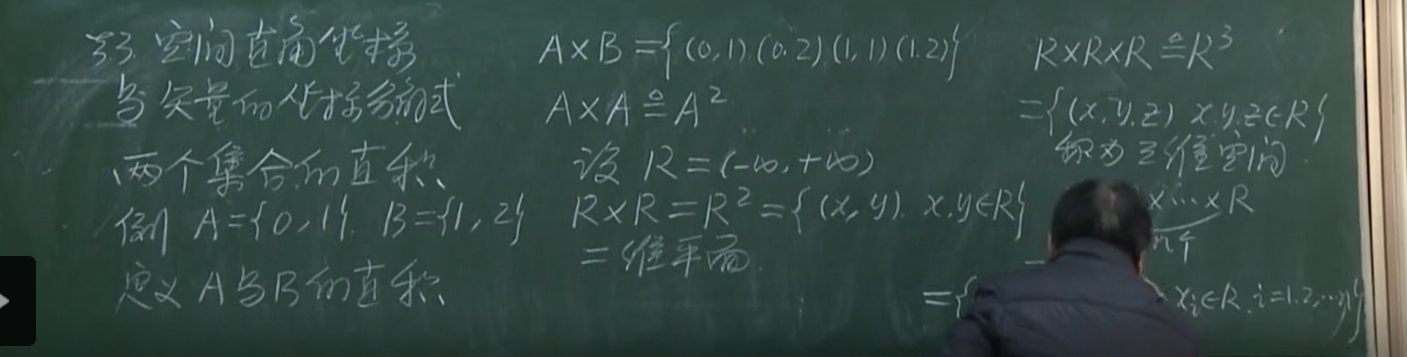 §3 空间直角坐标
与矢量的坐标分解式
两个集合的直积
例 A={0,1}. B={1,2}
定义 A与B的直积
A×B={(0,1).(0.2).(1,1)(1.2)}
A×A≙A²
设 R=(-∞,+∞)
R×R=R²={(x,y). x.y∈R}
二维平面
R×R×R≙R³
={(x,y,z) x.y.z∈R}
称为三维空间.
×⋯×R
n个
={ xᵢ∈R.i=1.2,⋯,n}